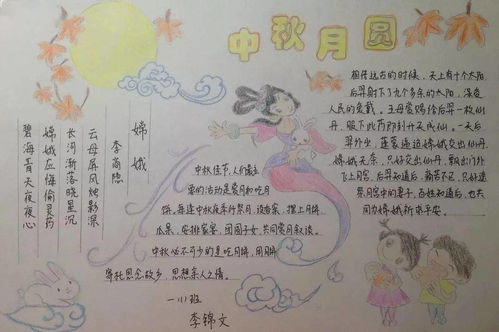 中秋月圆
嫦娥
李商隐
云母屏风烛影深
长河渐落晓星沉
嫦娥应悔偷灵药
碧海青天夜夜心
中秋佳节,人们最主
要的活动是赏月和吃月
饼,每逢中秋夜举行祭月,设香案,摆上月饼
瓜果,安排家宴,团圆子女,共同赏月叙谈。
中秋必不可少的是吃月饼,用月饼
寄托思念故乡,思想亲人之情。
一(1)班
李锦文
相传远古的时候,天上有十个太阳,
后羿射下了九个多余的太阳,深受
人民的爱戴。王母娘娘给后羿一枚仙
丹,服下此药即刻升天成仙。一天后
羿外出,蓬蒙逼迫嫦娥交出仙丹,
嫦娥无奈,只好
飞上月宫,后羿知道后,痛苦不已,只好遥
祭月宫中的妻子,百姓知道后,也共
同为嫦娥祈求平安。